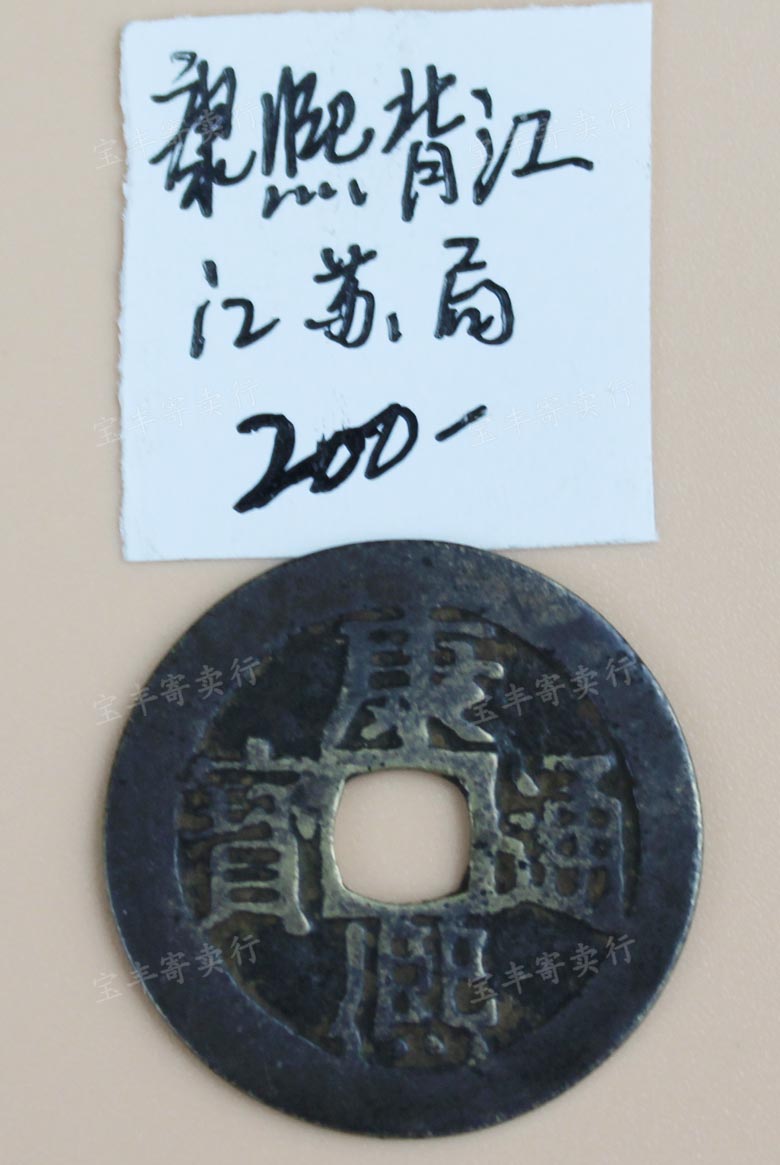 康熙背江
江苏局
200-
康熙通寶
宝丰寄卖行
宝丰寄卖行
宝丰寄卖行
宝丰寄卖行
宝丰寄卖行
宝丰寄卖行
宝丰寄卖行
宝丰寄卖行